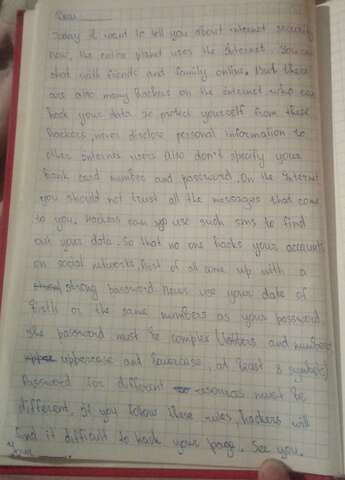 Dear
Today I want to tell you about internet security
now, the entire planet uses the Internet. You can
chat with friends and family online. But there
are also many hackers on the internet who can
hack your data. So protect yourself from these
hackers, never disclose personal information to
other internet users. Also don't specify your
bank card number and password. On the Internet
you should not trust all the messages that come
to you. Hackers can use such sms to find
out your data. So that no one hacks your accounts
on social networks, first of all come up with a
strong password. never use your date of
birth or the same numbers as your password
the password must be complex (letters and numbers
uppercase and lowercase, at least 8 symbols)
Password for different must be
different. If you follow these rules, hackers will
find it difficult to hack your page. See you.
your